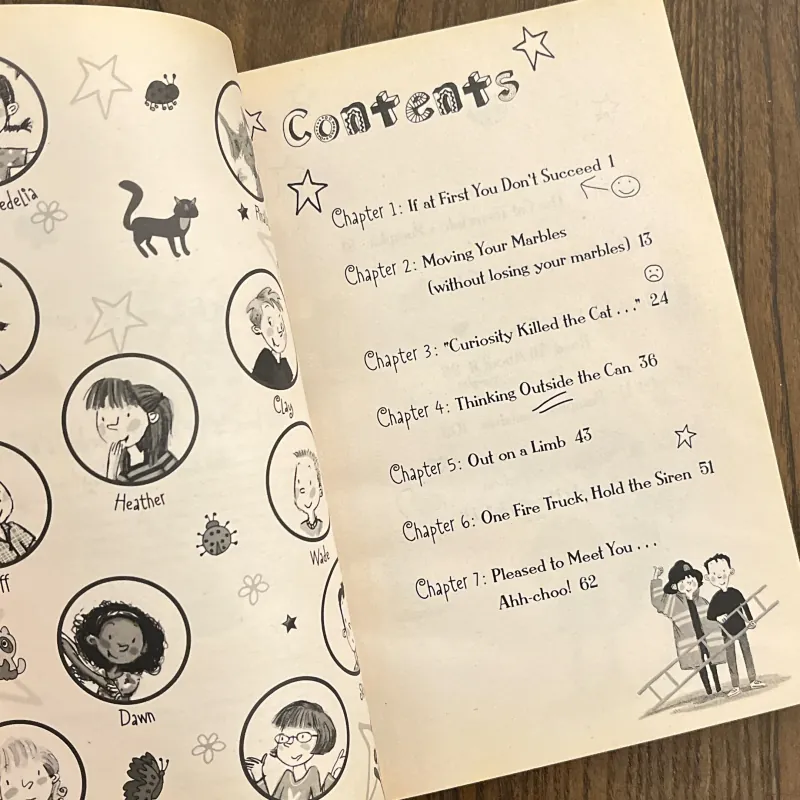 edelia
Clay
Heather
Wade
ff
Dawn
Contents
Chapter 1: If at First You Don't Succeed 1
Chapter 2: Moving Your Marbles
(without losing your marbles) 13
Chapter 3: "Curiosity Killed the Cat . . ." 24
Chapter 4: Thinking Outside the Can 36
Chapter 5: Out on a Limb 43
Chapter 6: One Fire Truck, Hold the Siren 51
Chapter 7: Pleased to Meet You . . .
Ahh-choo! 62